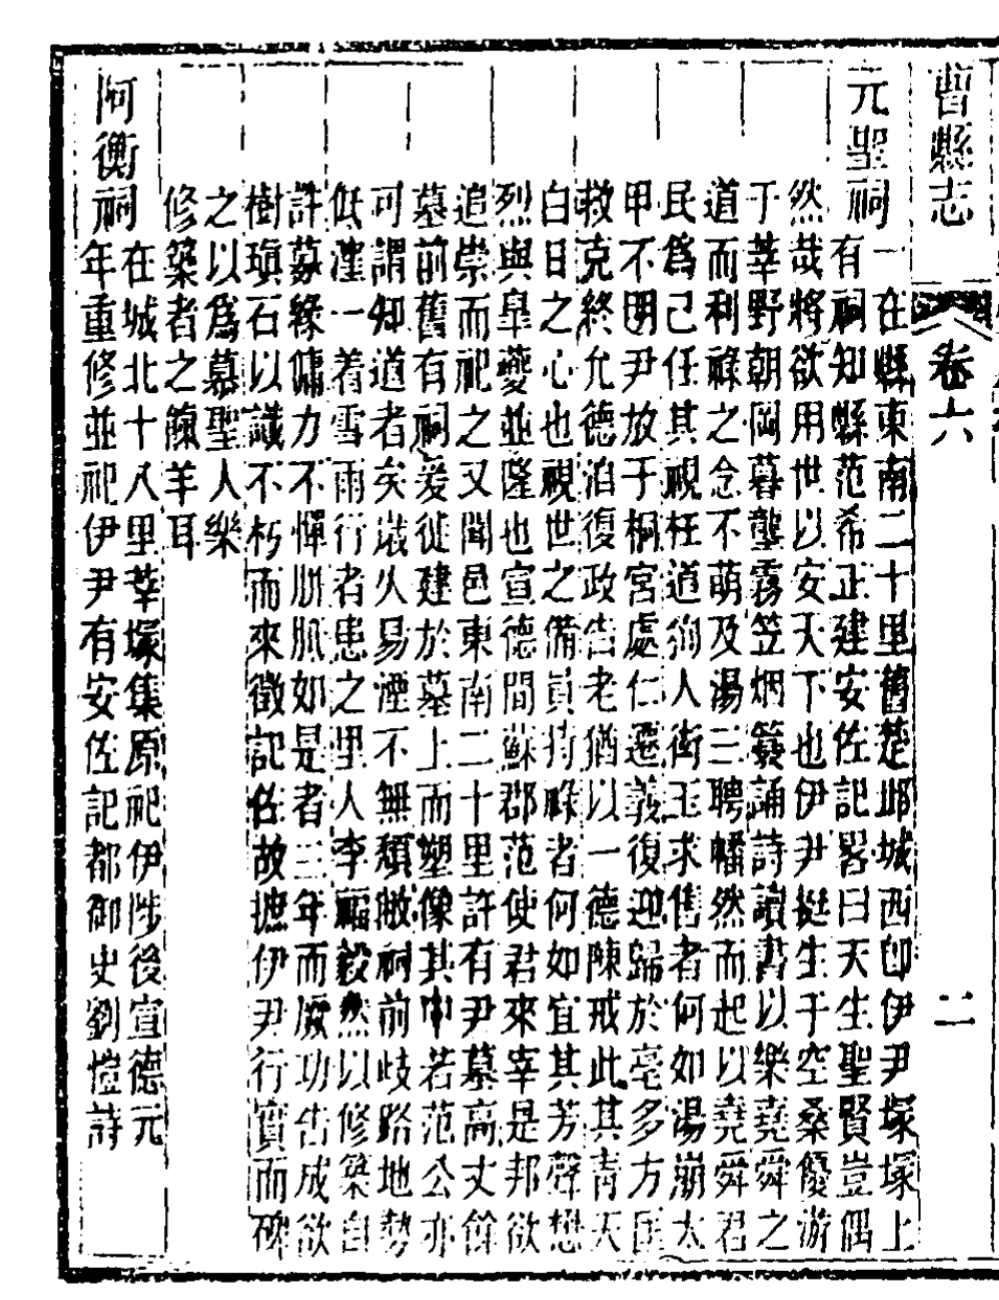 曹縣志
卷六
二
元聖祠
一在縣東南二十里舊楚邱城西卽伊尹塚塚上
有祠知縣范希正建安佐記畧曰天生聖賢豈偶
然哉將欲用世以安天下也伊尹挺生于空桑優游
于莘野朝岡暮壟霧笠烟簑誦詩讀書以樂堯舜之
道而利祿之念不萌及湯三聘幡然而起以堯舜君
民爲己任其視枉道狥人衒玉求售者何如湯崩太
甲不明尹放于桐宮處仁遷義復迎歸於亳多方匡
救克終允德洎復政告老猶以一德陳戒此其靑天
白日之心也視世之備員持祿者何如宜其芳聲懋
烈與皐夔並隆也宣德間蘇郡范使君來宰是邦欲
追崇而祀之又聞邑東南二十里許有尹墓高丈餘
墓前舊有祠爰徙建於墓上而塑像其中若范公亦
可謂知道者矣嵗久易湮不無頽敝祠前岐路地勢
低漥一着雪雨行者患之里人李福毅然以修築自
許募緣傭力不憚胼胝如是者三年而厥功告成欲
樹瑱石以識不朽而來徵記佐故摭伊尹行實而碑
之以爲慕聖人樂
修築者之餼羊耳
阿衡祠
在城北十八里莘塚集原祀伊陟後宣德元
年重修並祀伊尹有安佐記都御史劉愷詩